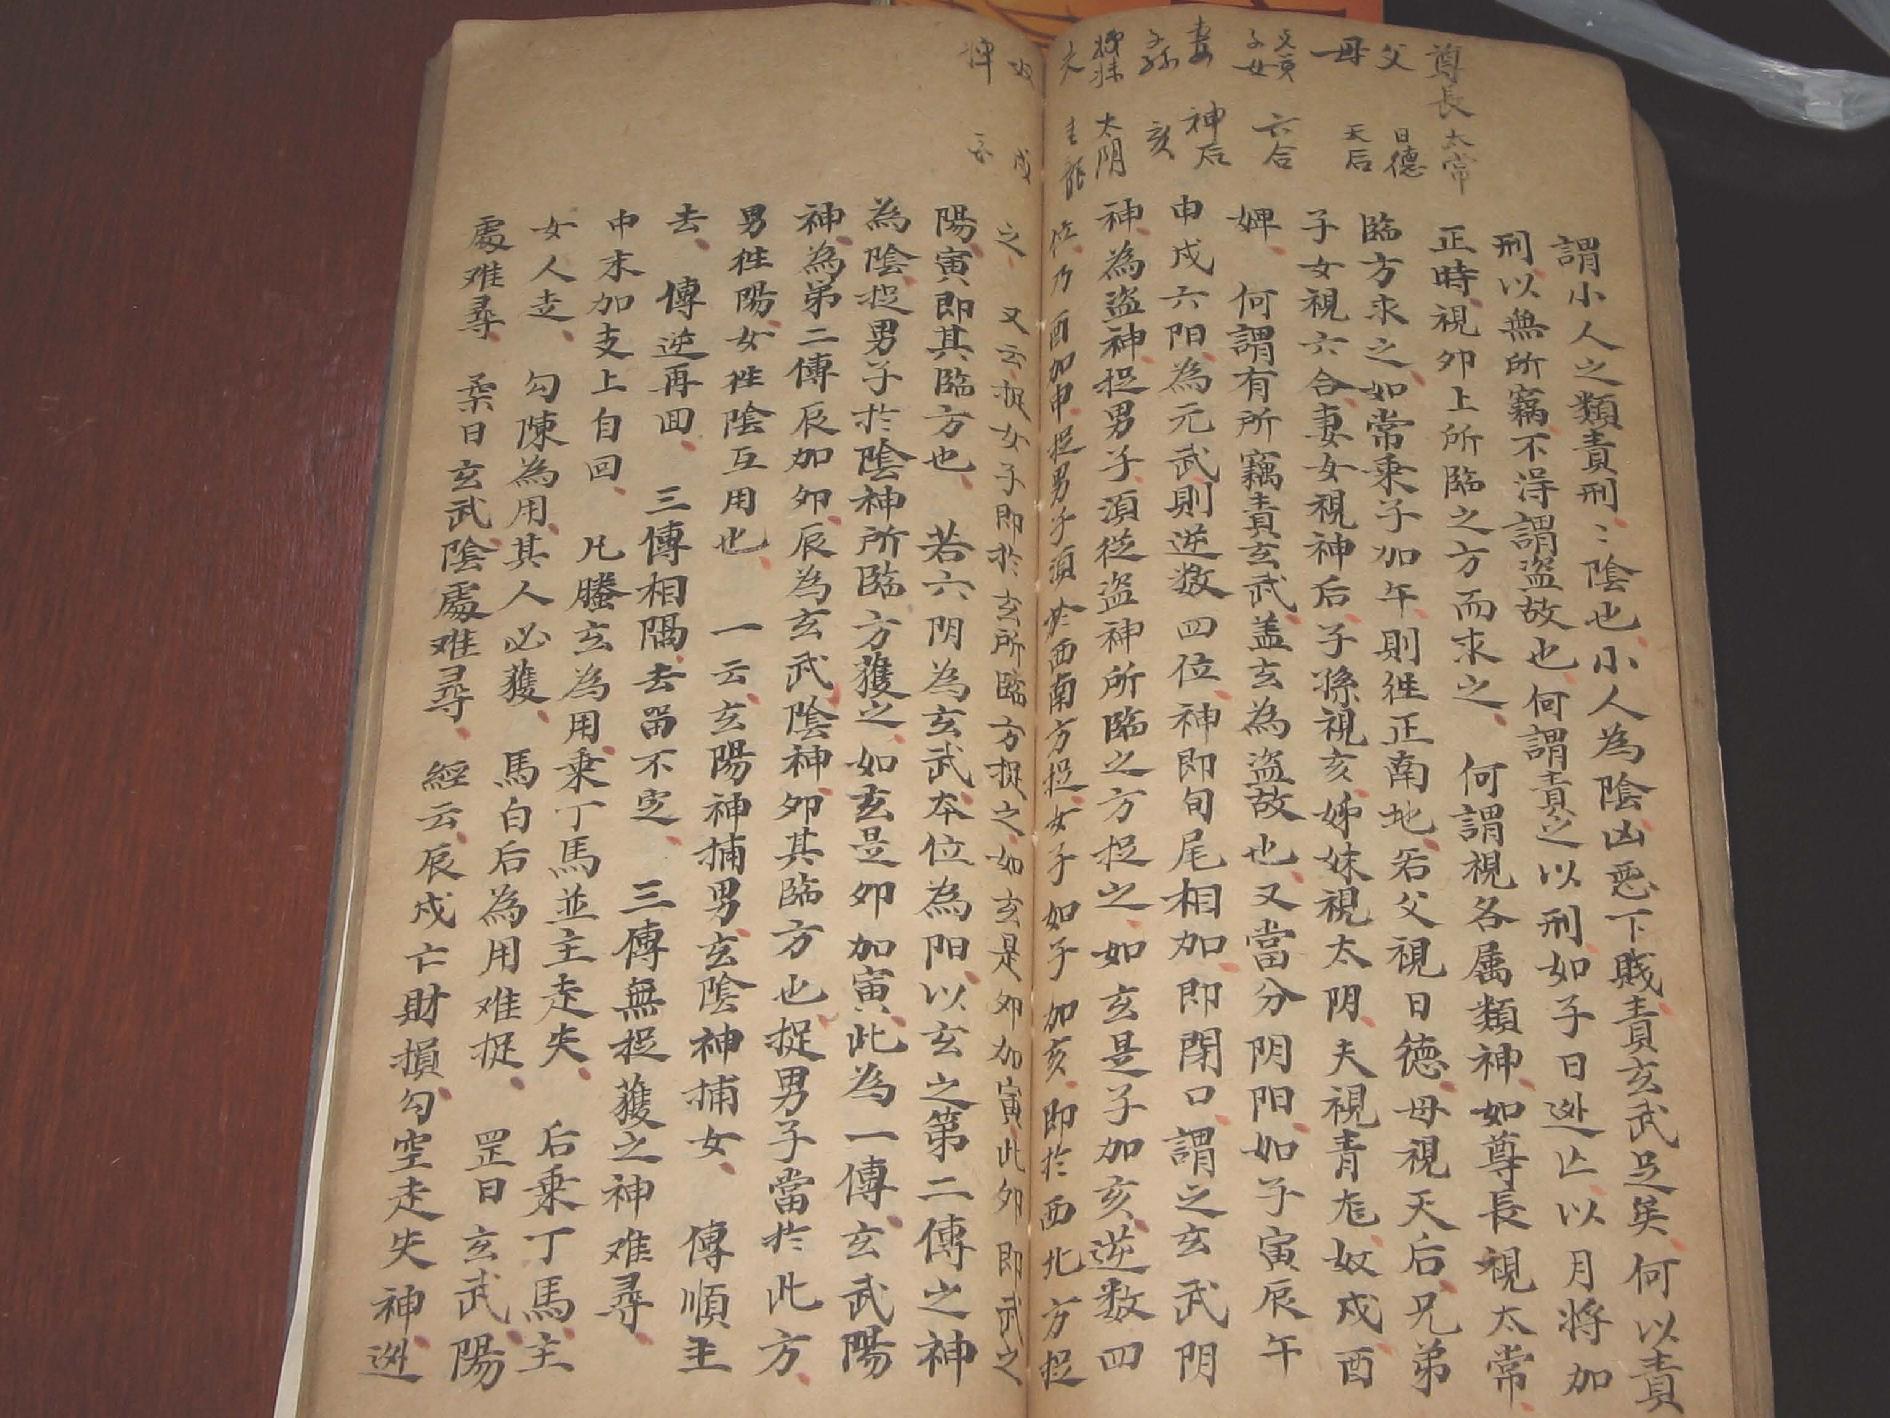 尊長 太常
父 日德
母 天后
兄弟 子女 六合
妻 神后
子孫 亥
姊妹 太阴
夫 青龍
奴 戌
婢 酉
謂小人之類責刑〻陰也小人為陰凶惡下賤責玄武足矣何以責
刑以無所竊不淂謂盜故也何謂責之以刑如子日逃亡以月將加
正時視夘上所臨之方而求之 何謂視各属類神如尊長視太常
臨方求之如常乘子加午則徃正南地若父視日德母視天后兄弟
子女視六合妻女視神后子孫視亥姊妹視太阴夫視青龙奴戌酉
婢 何謂有所竊責玄武盖玄為盜故也又當分阴阳如子寅辰午
申戌六阳為元武則逆数四位神即旬尾相加即閉口謂之玄武阴
神為盜神捉男子須從盜神所臨之方捉之如玄是子加亥逆数四
位乃酉加申捉男子須於西南方捉女子如子加亥即於西北方捉
之 又云捉女子即於玄所臨方捉之如玄是夘加寅此夘即武之
陽寅即其臨方也 若六阴為玄武本位為阳以玄之第二傳之神
為陰捉男子於陰神所臨方獲之如玄是夘加寅此為一傳玄武陽
神為第二傳辰加夘辰為玄武陰神夘其臨方也捉男子當於此方
男徃陽女徃陰互用也 一云玄陽神捕男玄陰神捕女 傳順主
去 傳逆再回 三傳相隔去留不定 三傳無捉獲之神难尋
申末加支上自回 凡螣玄為用乘丁馬並主走失 后乘丁馬主
女人走 勾陳為用其人必獲 馬白后為用难捉 罡日玄武陽
處难尋 柔日玄武陰處难尋 經云辰戌亡財損勾空走失神迯